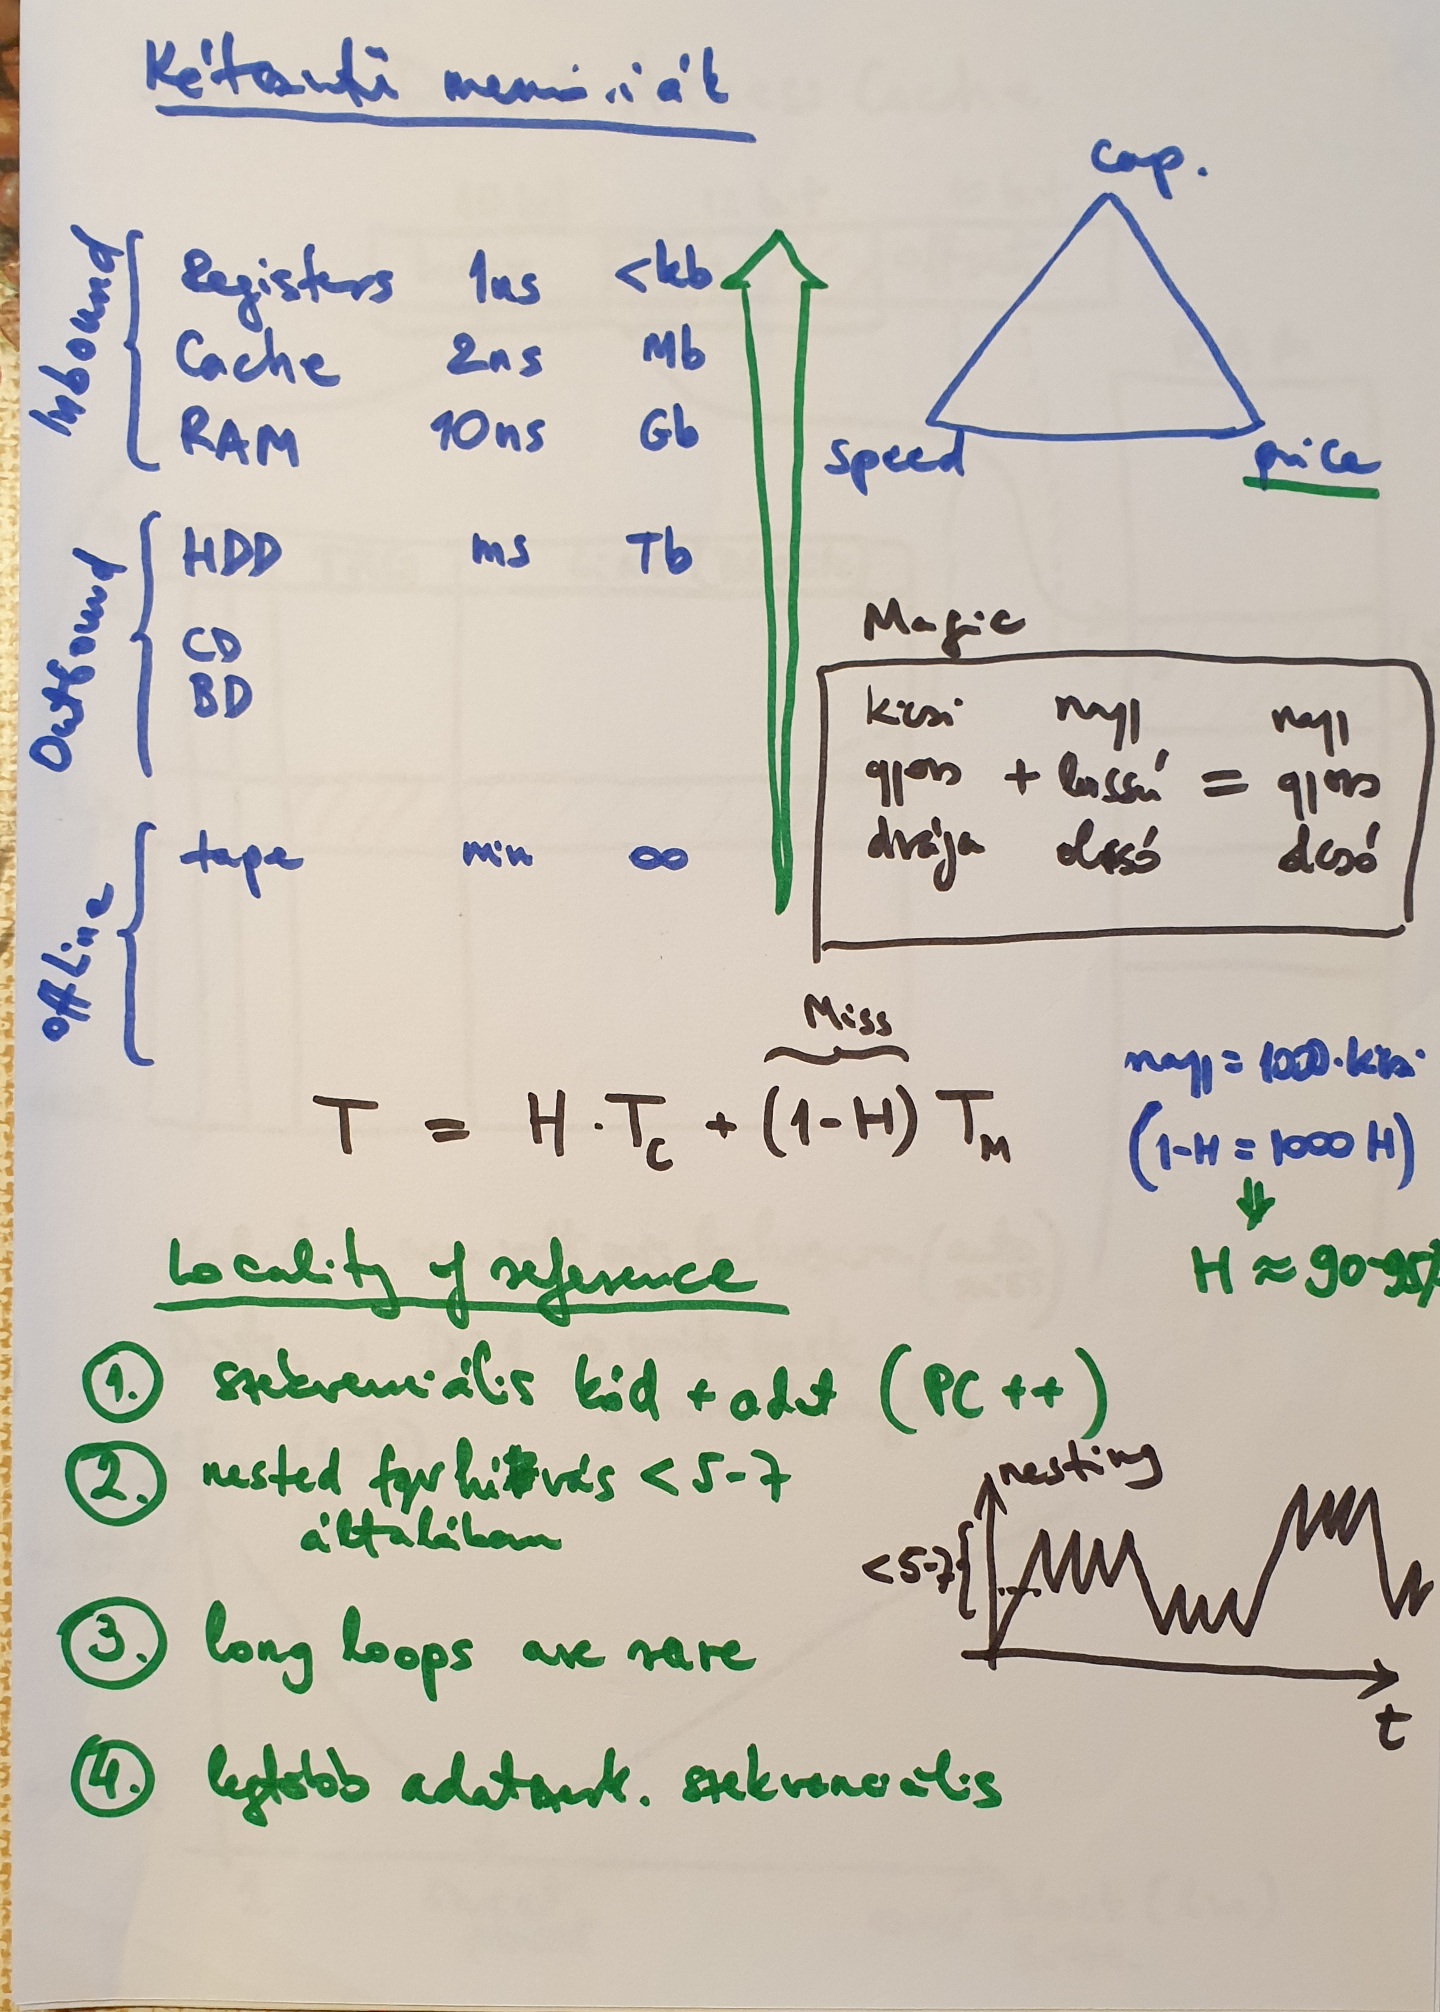 Kétszintű memóriák
cap.
speed
price
Inbound
Registers 1ns <kb
Cache 2ns Mb
RAM 10ns Gb
Outbound
HDD ms Tb
CD
BD
offline
tape min ∞
Magic
kicsi nagy nagy
gyors + lassú = gyors
drága olcsó olcsó
Miss
T = H · Tc + (1-H) TM
nagy = 1000·kicsi
(1-H = 1000 H)
H ≈ 90-95%
Locality of reference
1. szekvenciális kód + adat (PC++)
2. nested fgv hívás < 5-7
általában
nesting
< 5-7
t
3. long loops are rare
4. legtöbb adatszerk. szekvenciális